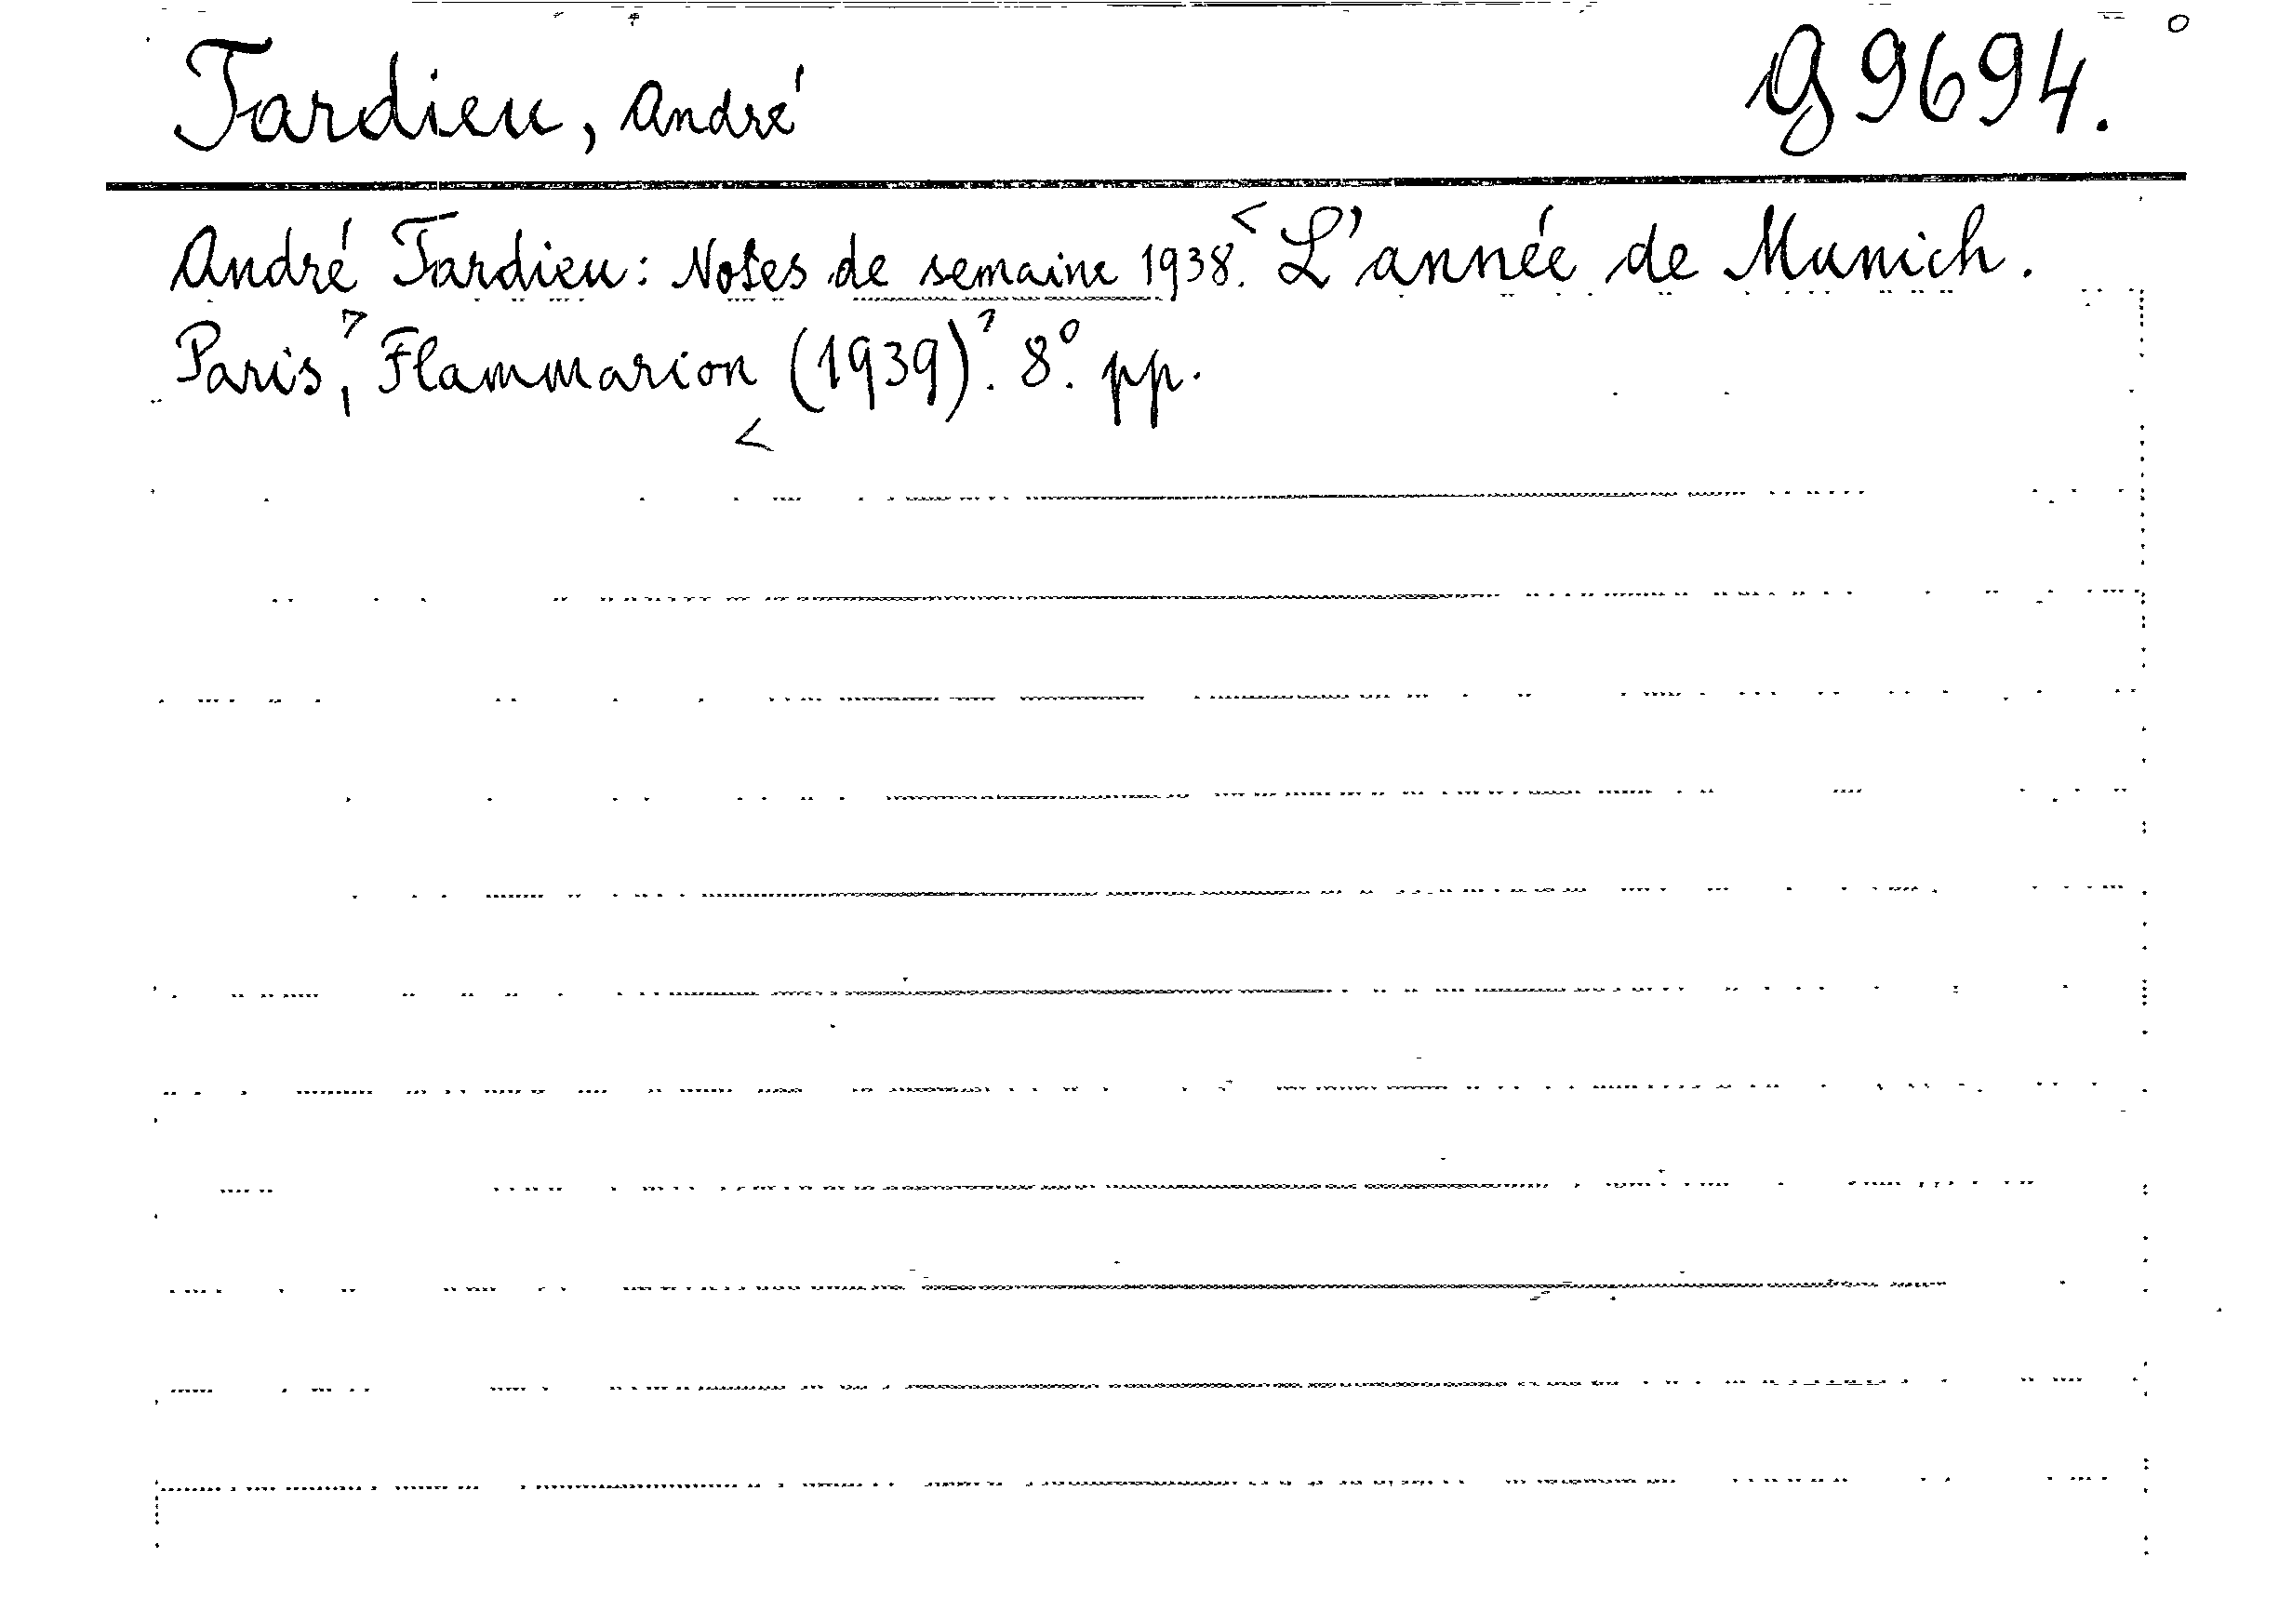 Tardieu, André G 9694.
André Tardieu: Notes de semaine 1938. < L'année de Munich.
Paris, > Flammarion (1939)? 8º. pp.
<